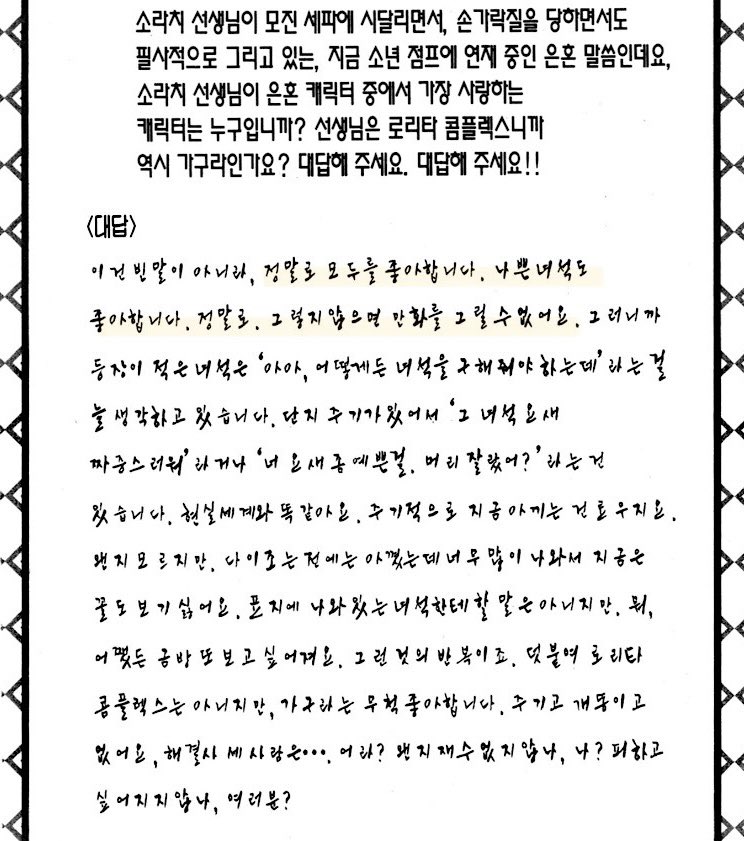 소라치 선생님이 모진 세파에 시달리면서, 손가락질을 당하면서도
필사적으로 그리고 있는, 지금 소년 점프에 연재 중인 은혼 말씀인데요,
소라치 선생님이 은혼 캐릭터 중에서 가장 사랑하는
캐릭터는 누구입니까? 선생님은 로리타 콤플렉스니까
역시 가구라인가요? 대답해 주세요. 대답해 주세요!!
<대답>
이건 빈말이 아니라, 정말로 모두를 좋아합니다. 나쁜 녀석도
좋아합니다. 정말로. 그렇지 않으면 만화를 그릴 수 없어요. 그러니까
등장이 적은 녀석은 '아아, 어떻게든 녀석을 구해줘야 하는데'라는 걸
늘 생각하고 있습니다. 단지 주기가 있어서 '그 녀석 요새
짜증스러워'라거나 '너 요새 좀 예쁜걸. 머리 잘랐어?'라는 건
있습니다. 현실세계와 똑같아요. 주기적으로 지금 아끼는 건 료우지요.
왠지 모르지만. 다이조는 전에는 아꼈는데 너무 많이 나와서 지금은
꼴도 보기 싫어요. 표지에 나와있는 녀석한테 할 말은 아니지만. 뭐,
어쨌든 금방 또 보고 싶어져요. 그런 것의 반복이죠. 덧붙여 로리타
콤플렉스는 아니지만, 가구라는 무척 좋아합니다. 주기고 개똥이고
없어요, 해결사 세 사람은…. 어라? 왠지 재수없지 않나, 나? 피하고
싶어지지 않나, 여러분?